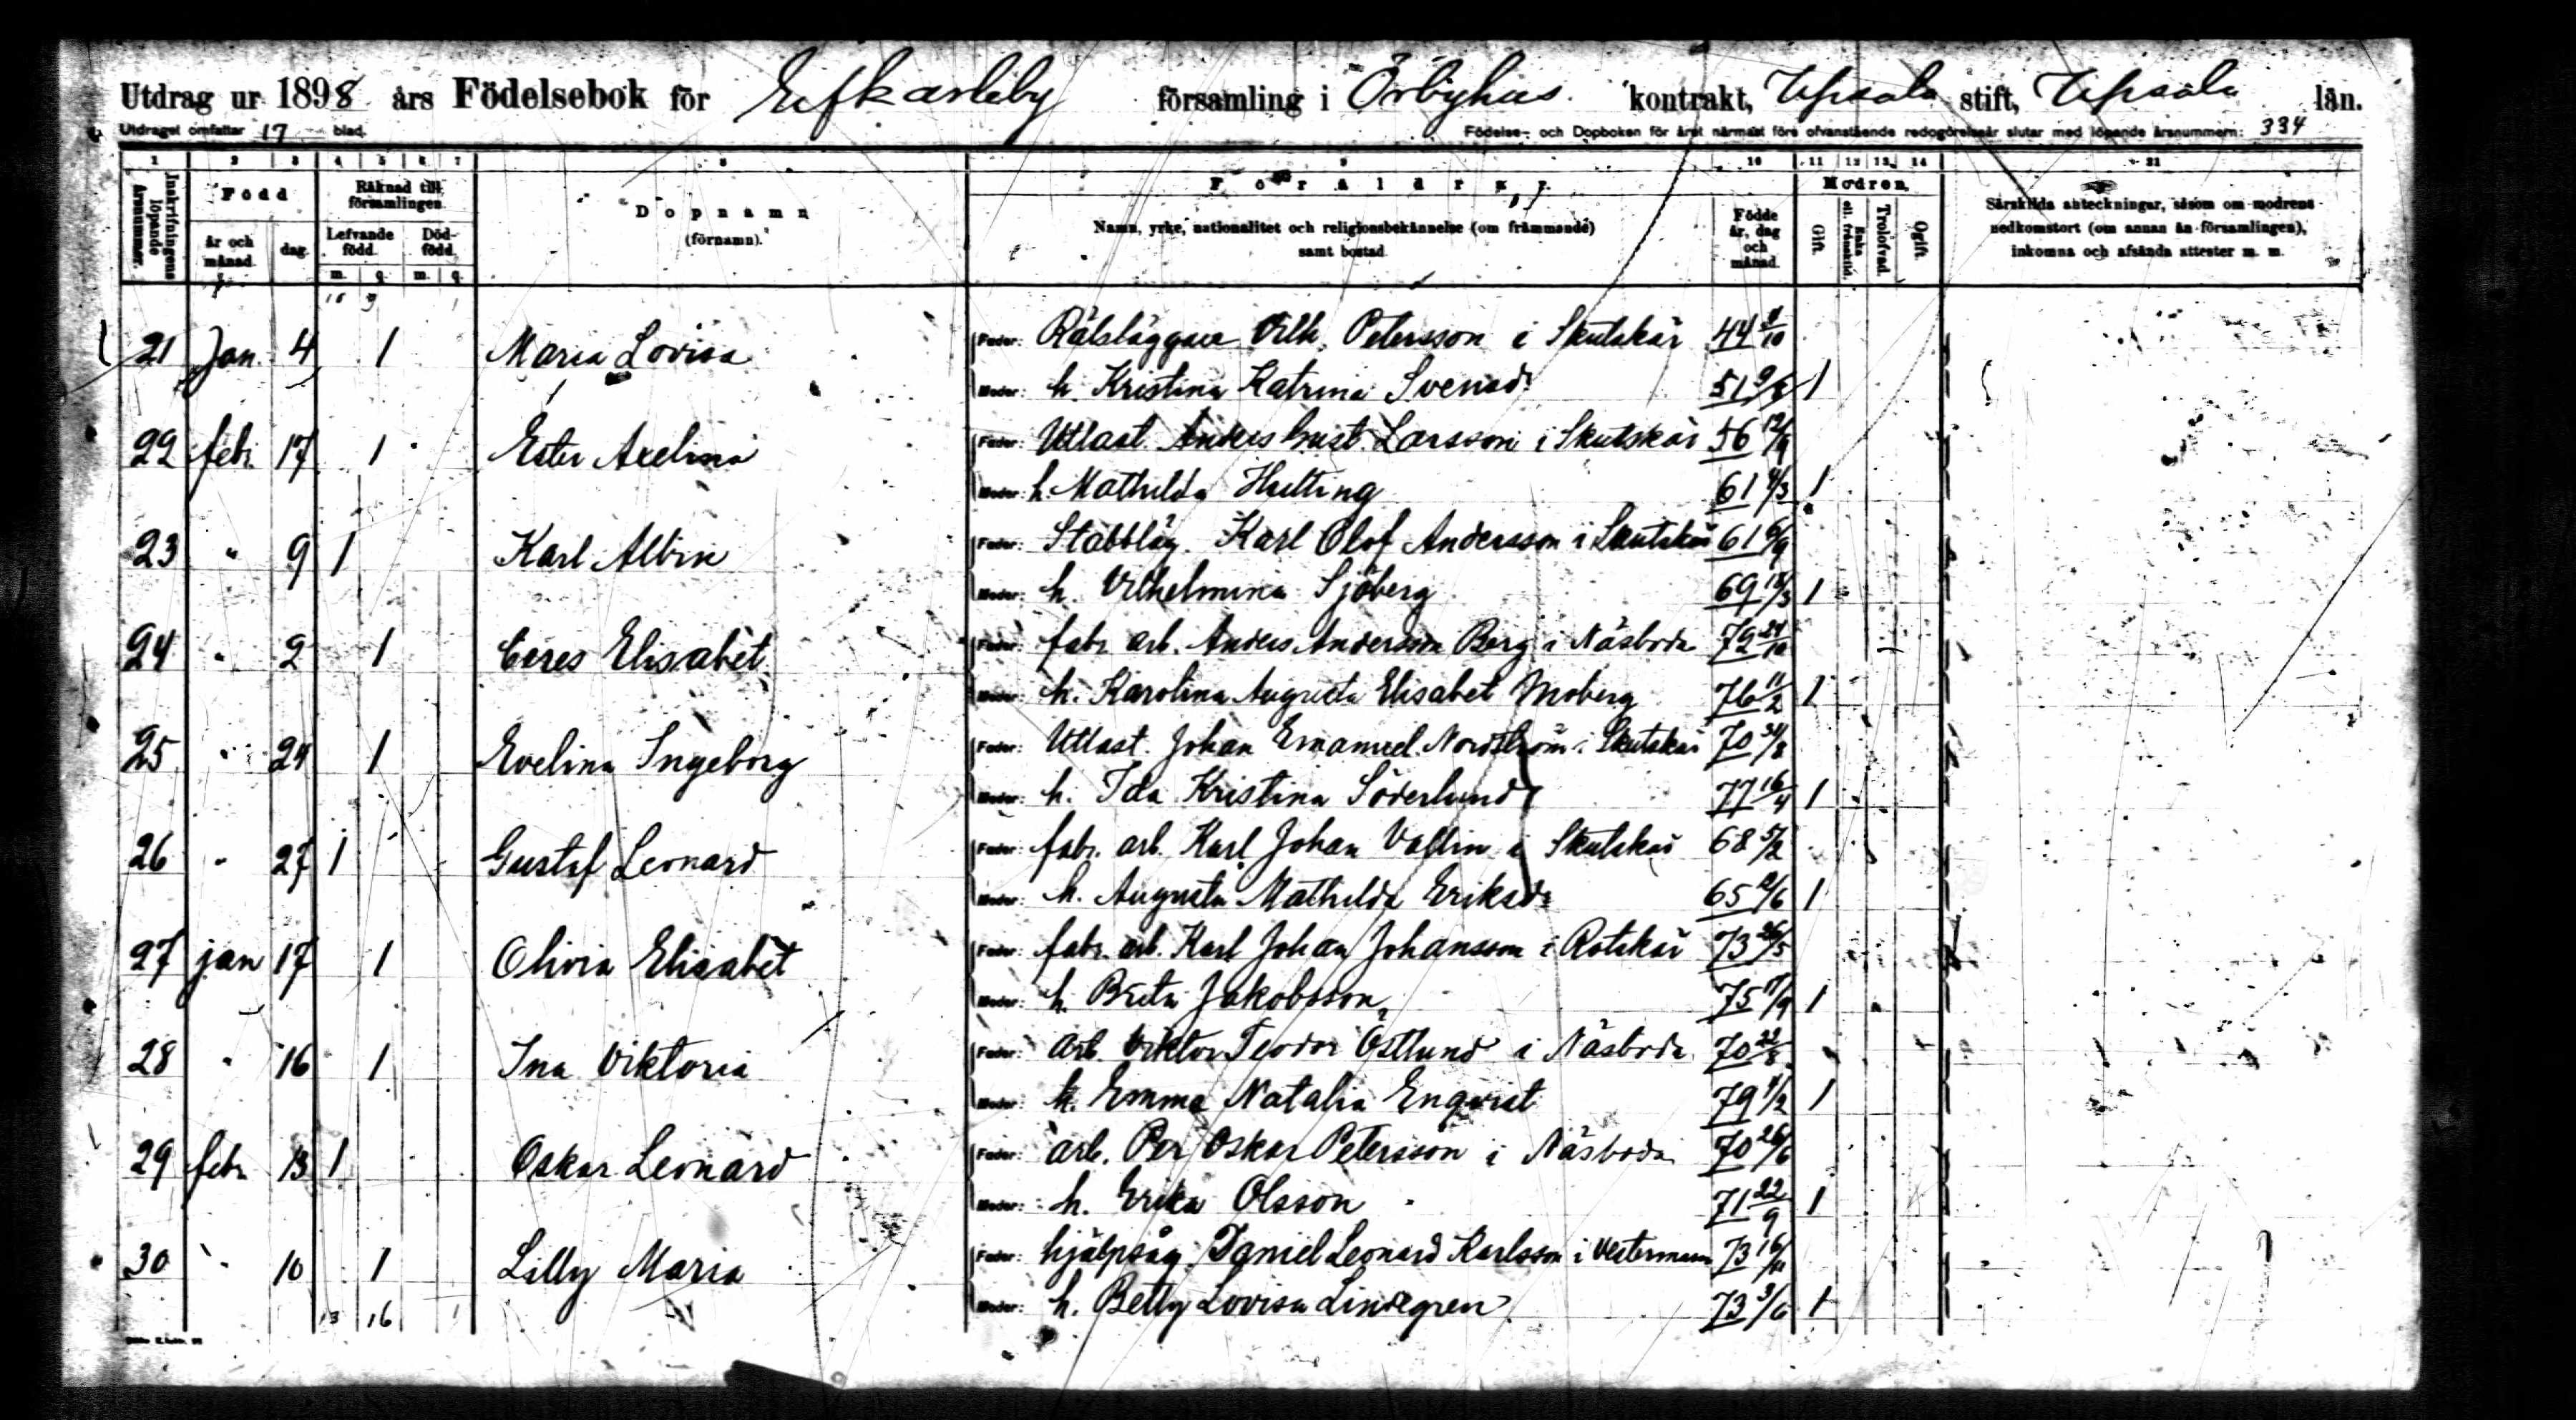 Utdrag ur 1898 års Födelsebok för Elfkarleby församling i Örbyhus kontrakt, Upsala stift, Upsala län.
Utdraget omfattar 17 blad.
Födelse- och Dopboken för året närmast före ofvanstående redogörelseår slutar med löpande årsnummern: 334
1 2 3 4 5 6 7 8 9 10 11 12 13 14 21
Inskrifningens löpande årsnummer.
Född
år och månad.
dag.
Räknad till församlingen.
Lefvande född.
Död-född.
m. q. m. q.
Dopnamn
(förnamn).
Föräldrar.
Namn, yrke, nationalitet och religionsbekännelse (om främmande)
samt bostad.
Födde år, dag och månad.
Modren.
Gift.
Enka ell. frånskild.
Trolofvad.
Ogift.
Särskilda anteckningar, såsom om modrens
nedkomstort (om annan än församlingen),
inkomna och afsända attester m. m.
21 Jan. 4 1 Maria Lovisa Fader: Rälsläggare Vilh. Petersson i Skutskär 44
Moder: h. Kristina Katrina Svensdr 51 1
22 febr 17 1 Ester Axelina Fader: Utlast. Anders Gust. Larsson i Skutskär 56 12/9
Moder: h. Mathilda Hulting 61 4/3 1
23 " 9 1 Karl Albin Fader: Stabbläg. Karl Olof Andersson i Skutskär 61 6/9
Moder: h. Vilhelmina Sjöberg 69 18/3 1
24 " 2 1 Ceres Elisabet Fader: fabr. arb. Anders Andersson Berg i Näsboda 72 24/10
Moder: h. Karolina Augusta Elisabet Moberg 76 11/2 1
25 " 24 1 Evelina Ingeborg Fader: Utlast. Johan Emanuel Nordström i Skutskär 70 31/8
Moder: h. Ida Kristina Söderlund 77 16/4 1
26 " 27 1 Gustaf Leonard Fader: fabr. arb. Karl Johan Vallin i Skutskär 68 5/2
Moder: h. Augusta Mathilda Eriksdr 65 1
27 jan 17 1 Olivia Elisabet Fader: fabr. arb. Karl Johan Johansson i Rotskär 73 26/5
Moder: h. Brita Jakobsson 75 1
28 " 16 1 Ina Viktoria Fader: arb. Viktor Teodor Östlund i Näsboda 70 22/8
Moder: h. Emma Natalia Enqvist 79 1
29 febr 13 1 Oskar Leonard Fader: arb. Per Oskar Petersson i Näsboda 70 26/6
Moder: h. Erika Olsson 71 22/9 1
30 " 10 1 Lilly Maria Fader: hjälpsåg. Daniel Leonard Karlsson i Vestermarn 73 16/11
Moder: h. Betty Lovisa Lindegren 73 3/6 1
13 16 1